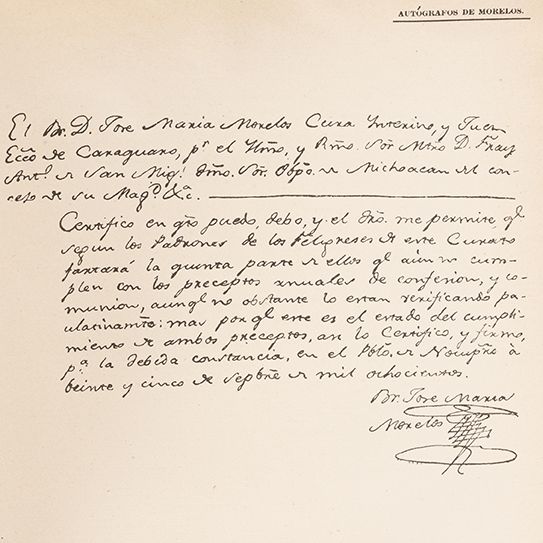 AUTÓGRAFOS DE MORELOS.
El Br. D. Jose Maria Morelos Cura Ynterino, y Juez
Ecco de Caraguaro, pr el Yllmo, y Rmo. Sor Mtro D. Fray
Anto. de San Migl. dmo. Sor. Obpo. de Michoacan del con-
cejo de su Magd. &c.
Certifico en qto puedo, debo, y el dro. me permite, ql
segun los Padrones de los Feligreses de este Curato
fantará la quinta parte de ellos ql aún no cum-
plen con los preceptos anuales de confesion, y co-
munion, aunql no obstante lo estan verificando pa-
ulatinamte: mas por ql este es el estado del cumpli-
miento de ambos preceptos, an lo Certifico, y firmo,
pa. la debida constancia, en el Pblo. de
beinte y cinco de Sepbre de mil ochocientos.
Br. Jose Maria
Morelos